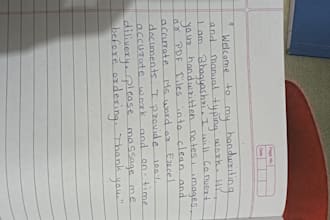 " Welcome to my handwriting
and manual typing work. Hi!
I am Bhagyashri. I will convert
your handwritten notes, images,
or PDF files into clean and
accurate Ms word or Excel
documents I provide 100%
accurate work and on-time
dilivery. please massage me
before ordering. Thank you."
Page No.
Date